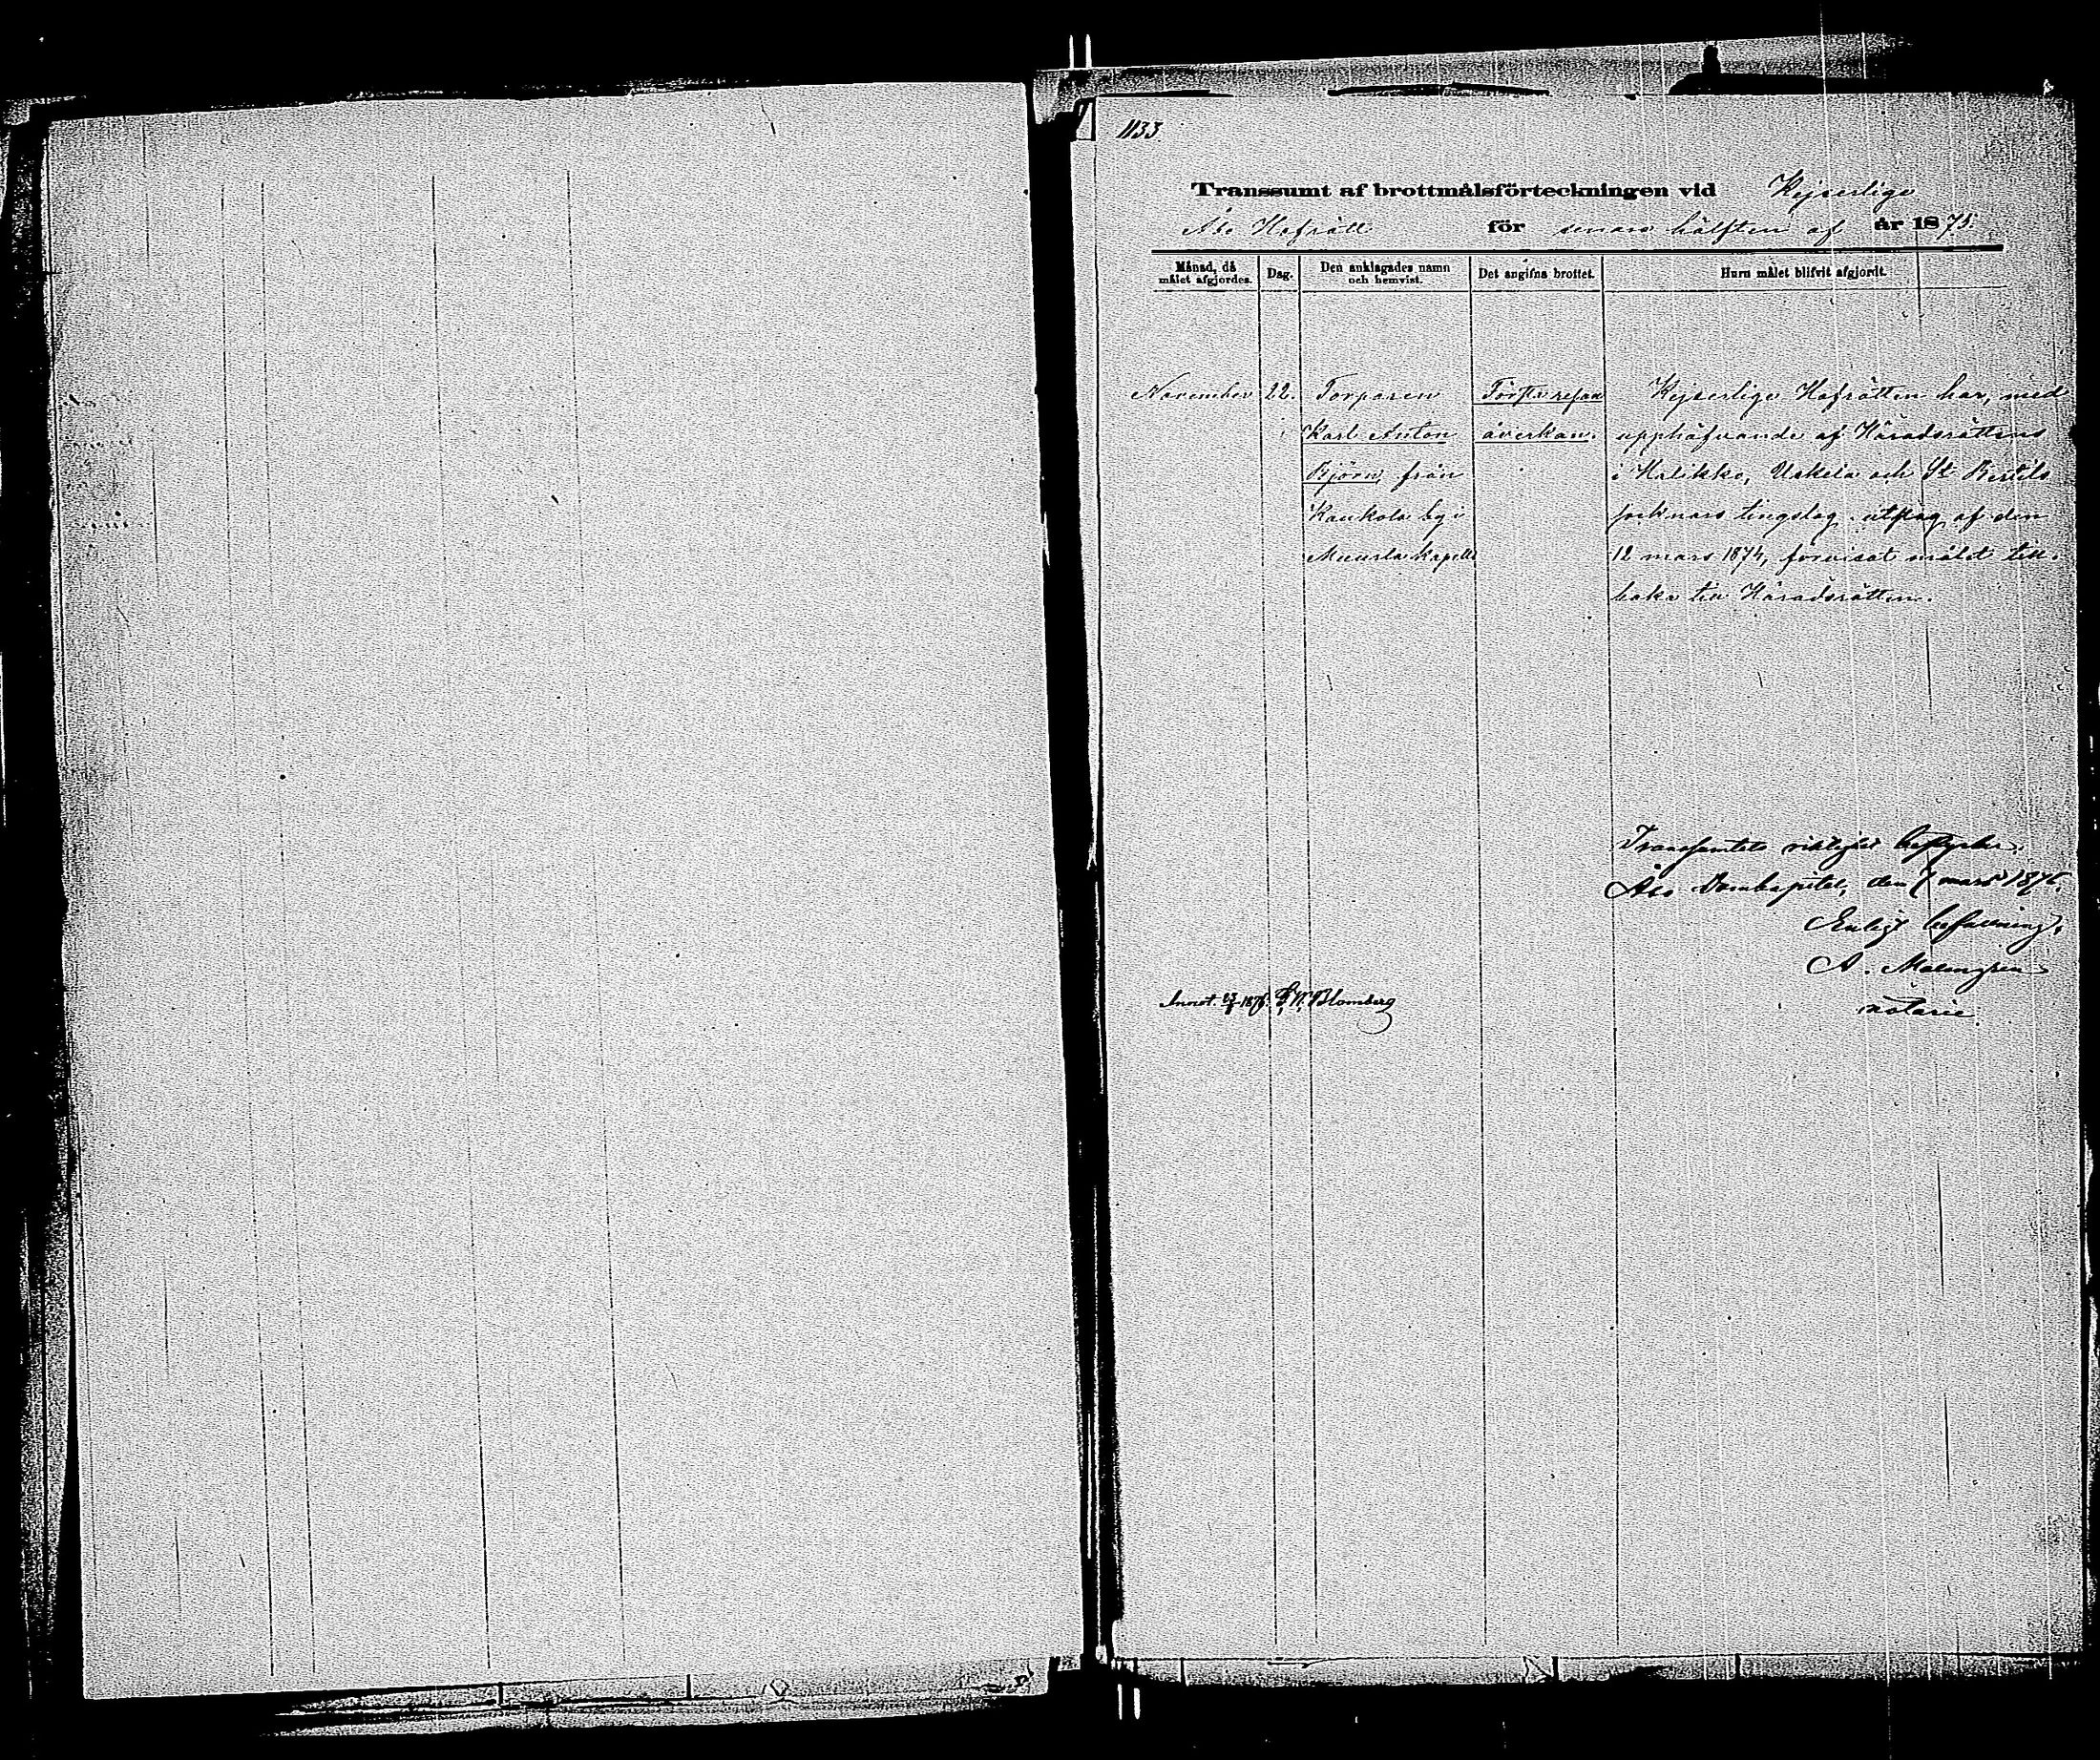 1133.
Transsumt af brottmålsförteckningen vid Kejserliga
Åbo Hofrätt för senare hälften af år 1875.
Månad, då målet afgjordes. Dag. Den anklagades namn och hemvist. Det angifna brottet. Huru målet blifvit afgjordt.
November 22. Torparen Första resan Kejserliga Hofrätten har, med
Karl Anton åverkan. upphäfvande af Häradsrättens
Björn, från i Halikko, Uskela och St Bertils
Kaukola by i socknars tingslag utslag af den
Muurla kapell 12 mars 1874, förvisat målet till-
baka till Häradsrätten.
Transsumtets riktighet bestyrker.
Åbo Domkapitel, den 7 mars 1876.
Enligt befallning,
A. Malmgren
notarie.
Annot. 1876. Blomberg